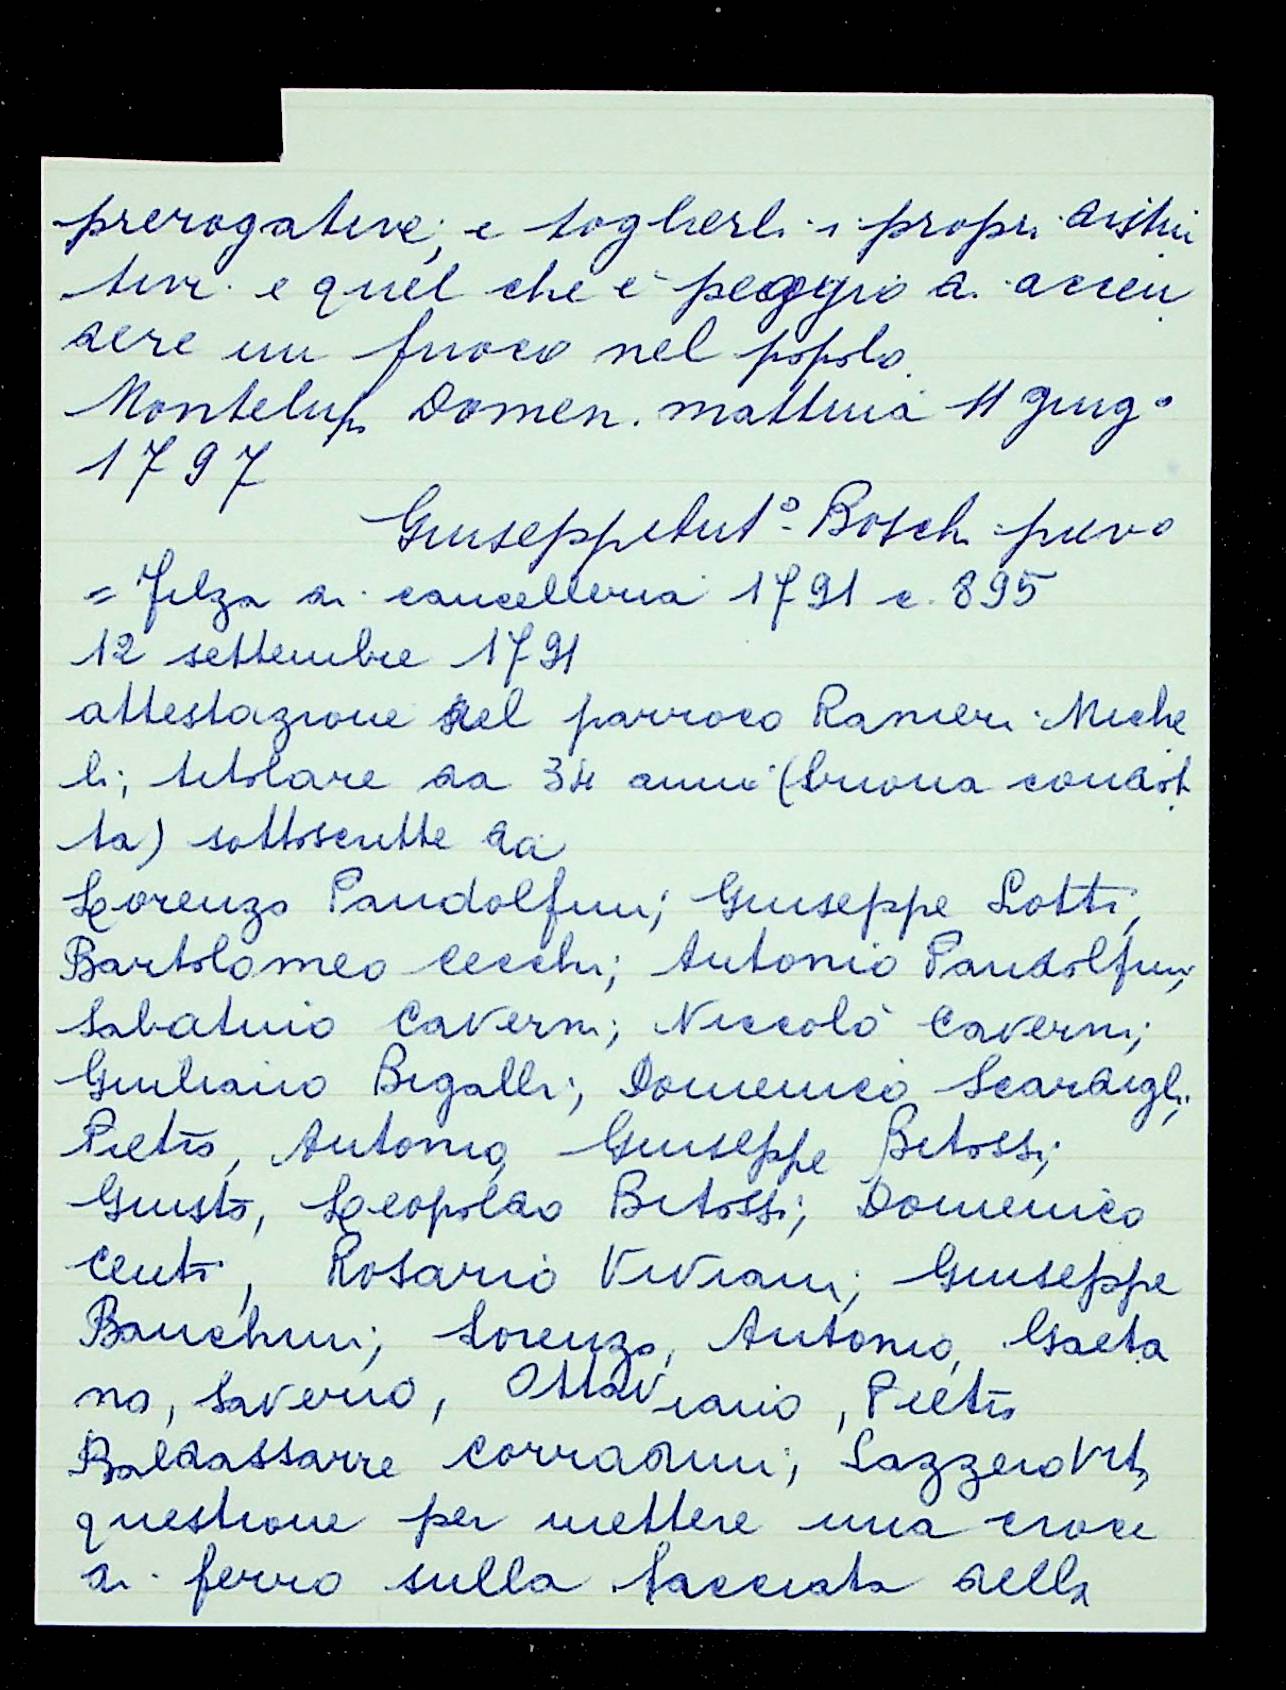 prerogative; e toglierli i propri distin
tivi e quel che è peggio di accen
dere un fuoco nel popolo.
Montelupo Domen. mattina 11 giug°
1797
Giuseppe Ant° Boschi pievo
= Filza di cancelleria 1791 c. 895
12 settembre 1791
attestazione del parroco Ranieri Miche
li; titolare da 34 anni (buona condot
ta) sottoscritte da
Lorenzo Pandolfini; Giuseppe Lotti,
Bartolomeo Cecchi; Antonio Pandolfini;
Sabatino Caverni; Niccolò Caverni;
Giuliano Bigalli; Domenico Scardigli;
Pietro, Antonio, Giuseppe Bitossi;
Giusto, Leopoldo Bitossi; Domenico
Centi, Rosario Viviani; Giuseppe
Banchini; Lorenzo, Antonio, Gaeta
no, Saverio, Ottaviano, Pietro
Baldassarre Corradini; Lazzero Viti,
questione per mettere una croce
di ferro sulla facciata della